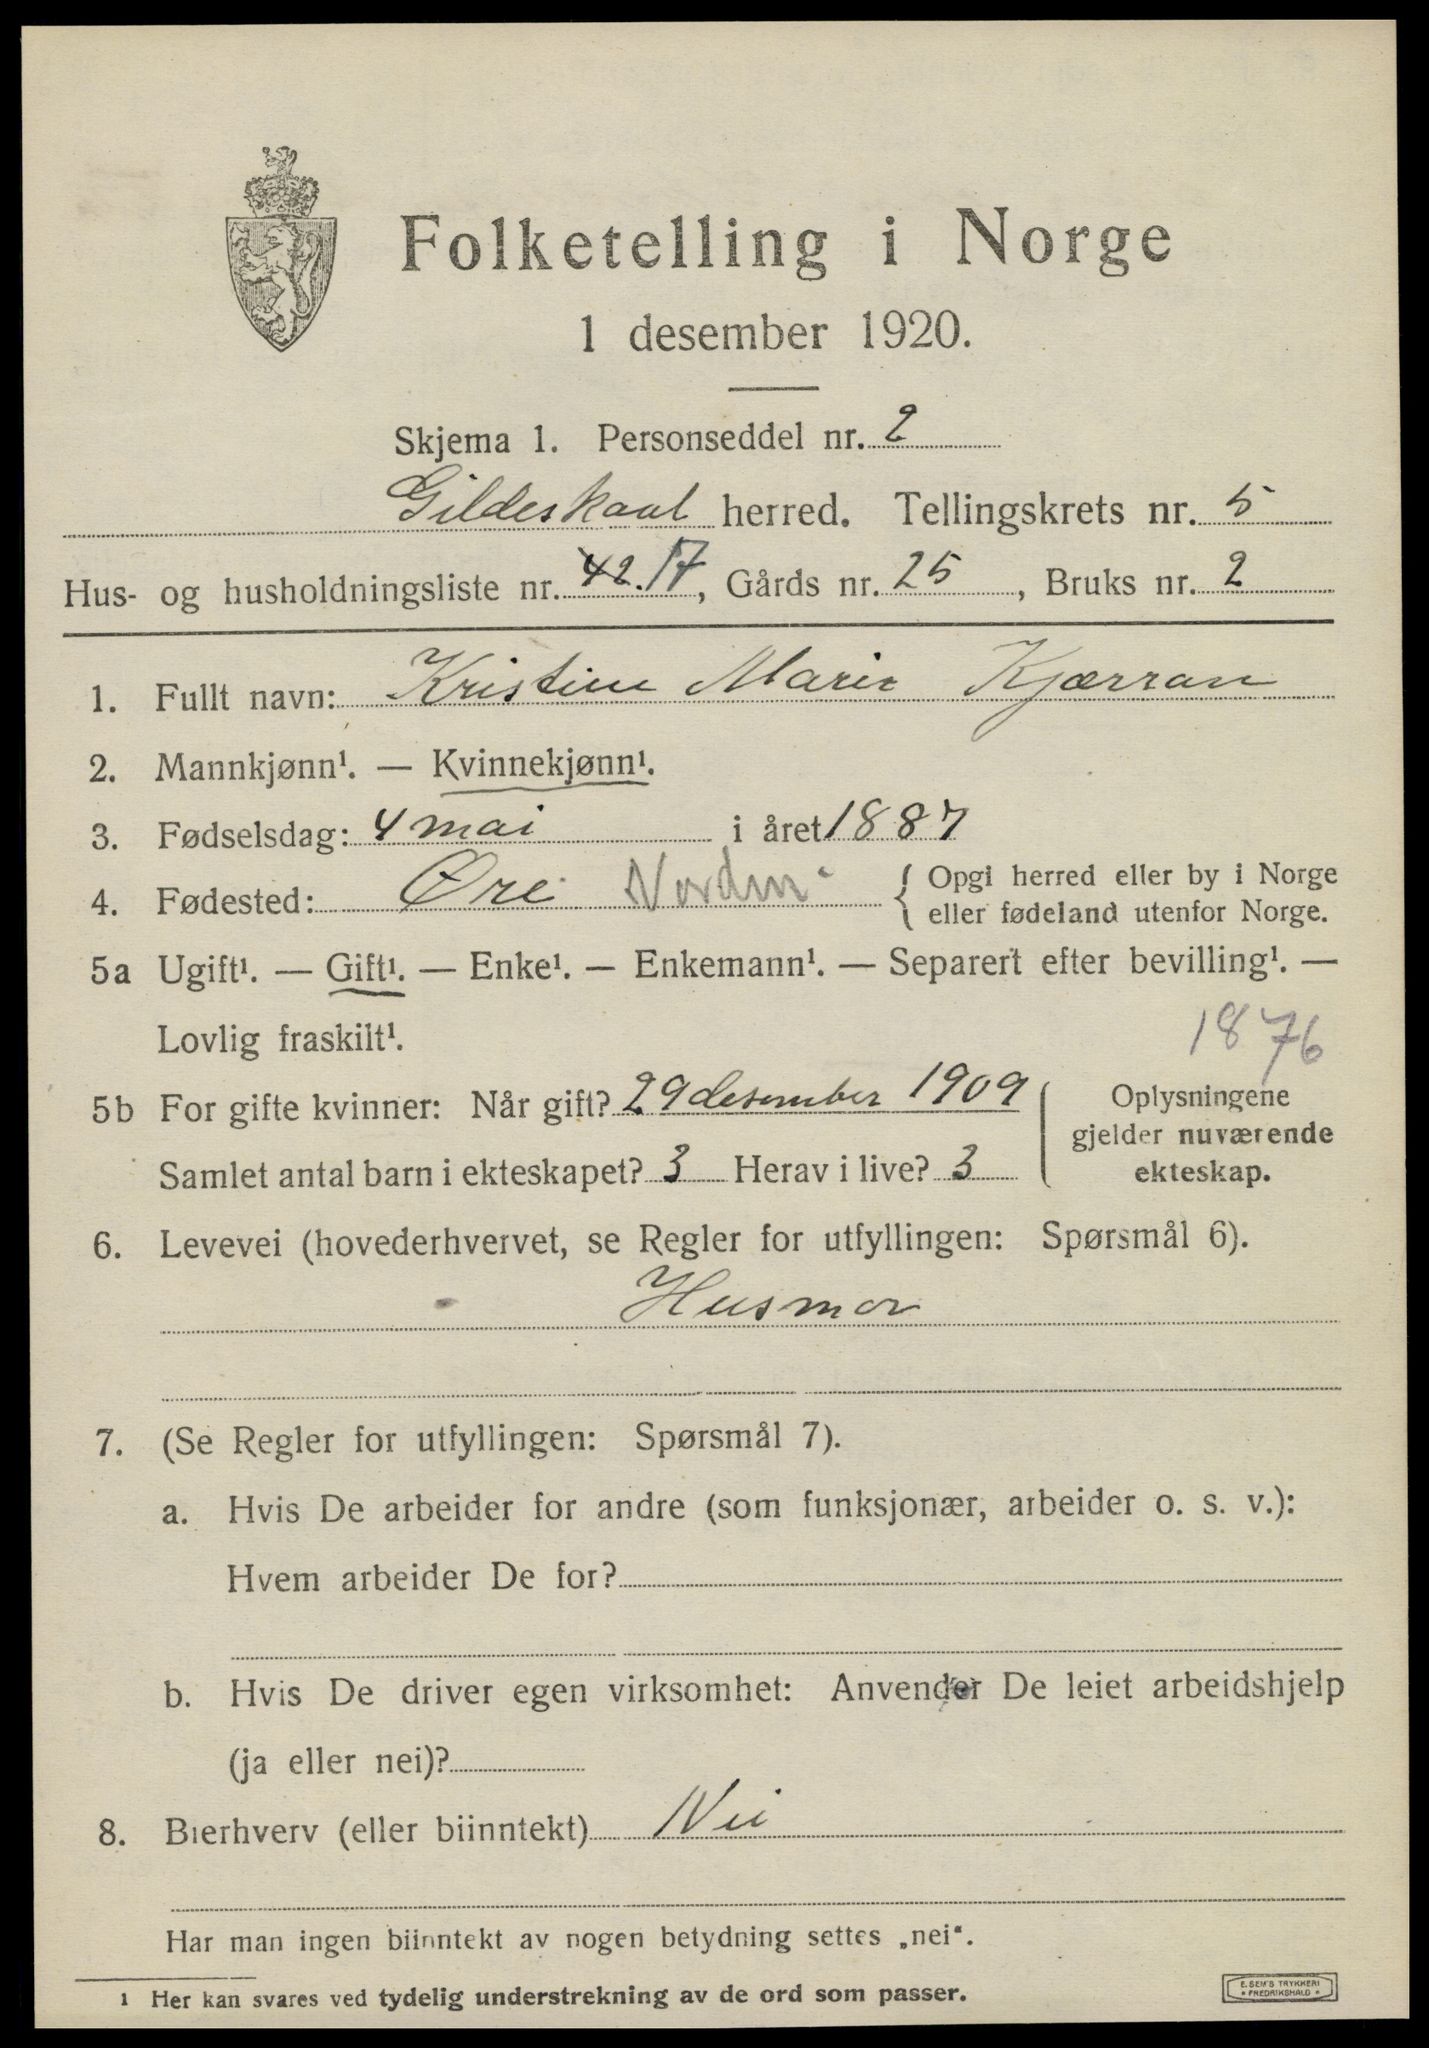 Folketelling i Norge
1 desember 1920.
Skjema 1. Personseddel nr. 2
Gildeskaal herred. Tellingskrets nr. 5
Hus- og husholdningsliste nr. 42. 17, Gårds nr. 25, Bruks nr. 2
1. Fullt navn: Kristine Marie Kjærran
2. Mannkjønn¹. — Kvinnekjønn¹.
3. Fødselsdag: 4 mai i året 1887
4. Fødested: Øre Nordm. { Opgi herred eller by i Norge
eller fødeland utenfor Norge.
5a Ugift¹. — Gift¹. — Enke¹. — Enkemann¹. — Separert efter bevilling¹. —
Lovlig fraskilt¹.
1876
5b For gifte kvinner: Når gift? 29 desember 1909
Samlet antal barn i ekteskapet? 3 Herav i live? 3
Oplysningene
gjelder nuværende
ekteskap.
6. Levevei (hovederhvervet, se Regler for utfyllingen: Spørsmål 6).
Husmor
7. (Se Regler for utfyllingen: Spørsmål 7).
a. Hvis De arbeider for andre (som funksjonær, arbeider o. s. v.):
Hvem arbeider De for?
b. Hvis De driver egen virksomhet: Anvender De leiet arbeidshjelp
(ja eller nei)?
8. Bierhverv (eller biinntekt) Nei
Har man ingen biinntekt av nogen betydning settes „nei“.
1 Her kan svares ved tydelig understrekning av de ord som passer.
E. SEM'S TRYKKERI
FREDRIKSHALD